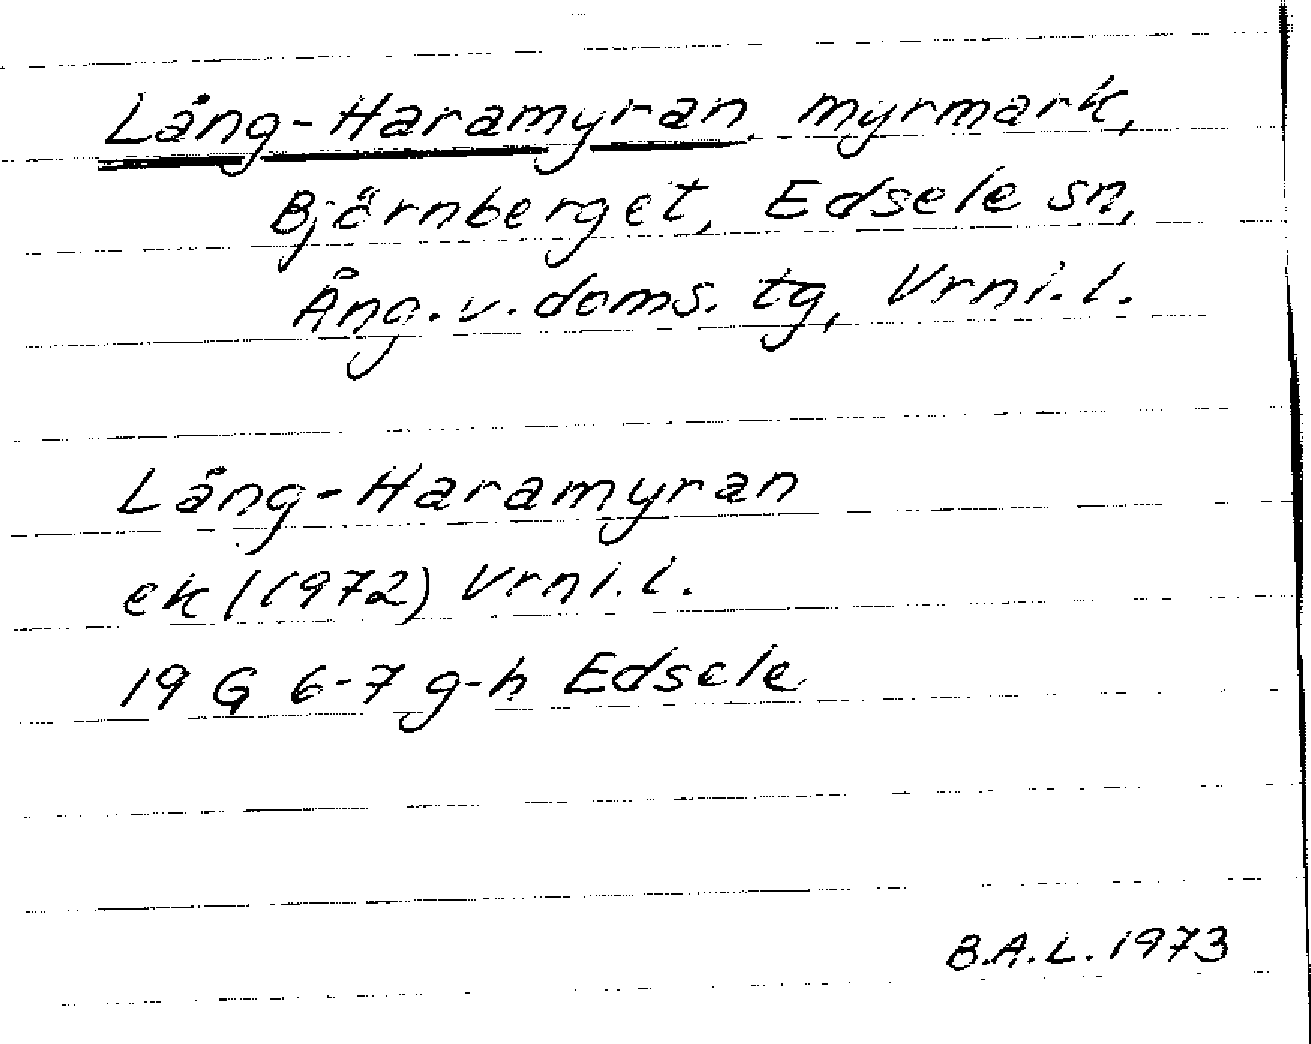 Lång-Haramyran, myrmark,
Björnberget, Edsele sn,
Ång. v. doms. tg, Vrnl. l.
Lång-Haramyran
ek l (1972) Vrnl. l.
19 G 6-7 g-h Edsele
B.A.L. 1973